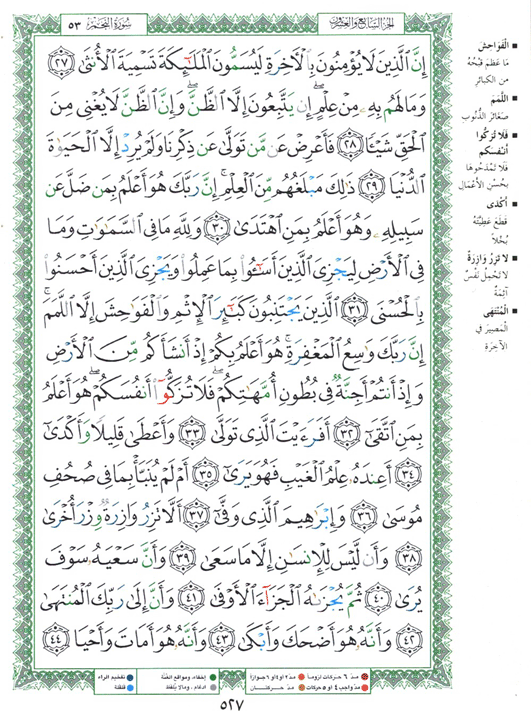 سُورَةُ النَّجْمِ ٥٣
الجزء السابع والعشرون
إِنَّ الَّذِينَ لَا يُؤْمِنُونَ بِالْآخِرَةِ لَيُسَمُّونَ الْمَلَائِكَةَ تَسْمِيَةَ الْأُنثَىٰ ٢٧
وَمَا لَهُم بِهِ مِنْ عِلْمٍ إِن يَتَّبِعُونَ إِلَّا الظَّنَّ وَإِنَّ الظَّنَّ لَا يُغْنِي مِنَ
الْحَقِّ شَيْئًا ٢٨ فَأَعْرِضْ عَن مَّن تَوَلَّىٰ عَن ذِكْرِنَا وَلَمْ يُرِدْ إِلَّا الْحَيَوٰةَ
الدُّنْيَا ٢٩ ذَٰلِكَ مَبْلَغُهُم مِّنَ الْعِلْمِ إِنَّ رَبَّكَ هُوَ أَعْلَمُ بِمَن ضَلَّ عَن
سَبِيلِهِ وَهُوَ أَعْلَمُ بِمَنِ اهْتَدَىٰ ٣٠ وَلِلَّهِ مَا فِي السَّمَٰوَٰتِ وَمَا
فِي الْأَرْضِ لِيَجْزِيَ الَّذِينَ أَسَٰٓـُٔوا بِمَا عَمِلُوا وَيَجْزِيَ الَّذِينَ أَحْسَنُوا
بِالْحُسْنَى ٣١ الَّذِينَ يَجْتَنِبُونَ كَبَٰٓئِرَ الْإِثْمِ وَالْفَوَٰحِشَ إِلَّا اللَّمَمَ
إِنَّ رَبَّكَ وَٰسِعُ الْمَغْفِرَةِ هُوَ أَعْلَمُ بِكُمْ إِذْ أَنشَأَكُم مِّنَ الْأَرْضِ
وَإِذْ أَنتُمْ أَجِنَّةٌ فِي بُطُونِ أُمَّهَٰتِكُمْ فَلَا تُزَكُّوٓا أَنفُسَكُمْ هُوَ أَعْلَمُ
بِمَنِ اتَّقَىٰ ٣٢ أَفَرَءَيْتَ الَّذِي تَوَلَّىٰ ٣٣ وَأَعْطَىٰ قَلِيلًا وَأَكْدَىٰ
٣٤ أَعِندَهُ عِلْمُ الْغَيْبِ فَهُوَ يَرَىٰ ٣٥ أَمْ لَمْ يُنَبَّأْ بِمَا فِي صُحُفِ
مُوسَىٰ ٣٦ وَإِبْرَٰهِيمَ الَّذِي وَفَّىٰ ٣٧ أَلَّا تَزِرُ وَازِرَةٌ وِزْرَ أُخْرَىٰ
٣٨ وَأَن لَّيْسَ لِلْإِنسَٰنِ إِلَّا مَا سَعَىٰ ٣٩ وَأَنَّ سَعْيَهُ سَوْفَ
يُرَىٰ ٤٠ ثُمَّ يُجْزَىٰهُ الْجَزَآءَ الْأَوْفَىٰ ٤١ وَأَنَّ إِلَىٰ رَبِّكَ الْمُنتَهَىٰ
٤٢ وَأَنَّهُ هُوَ أَضْحَكَ وَأَبْكَىٰ ٤٣ وَأَنَّهُ هُوَ أَمَاتَ وَأَحْيَا ٤٤
الْفَوَاحِشَ
مَا عَظُمَ قُبْحُهُ
من الكبائر
اللَّمَمَ
صَغَائِرَ الذُّنُوبِ
فَلَا تُزَكُّوا
أَنْفُسَكُمْ
فَلَا تَمْدَحُوهَا
بِحُسْنِ الأَعْمَالِ
أَكْدَى
قَطَعَ عَطِيَّتَهُ
بُخْلًا
لَا تَزِرُ وَازِرَةٌ
لَا تَحْمِلُ نَفْسٌ
آثِمَةٌ
الْمُنْتَهَى
الْمَصِيرَ فِي
الآخِرَةِ
مدّ ٦ حركات لزوماً
مدّ ٢ أو ٤ أو ٦ جوازاً
إخفاء، ومواقع الغُنَّة
تفخيم الراء
مدّ واجب ٤ أو ٥ حركات
مدّ حركتان
إدغام، وما لا يُلفظ
قلقلة
٥٢٧